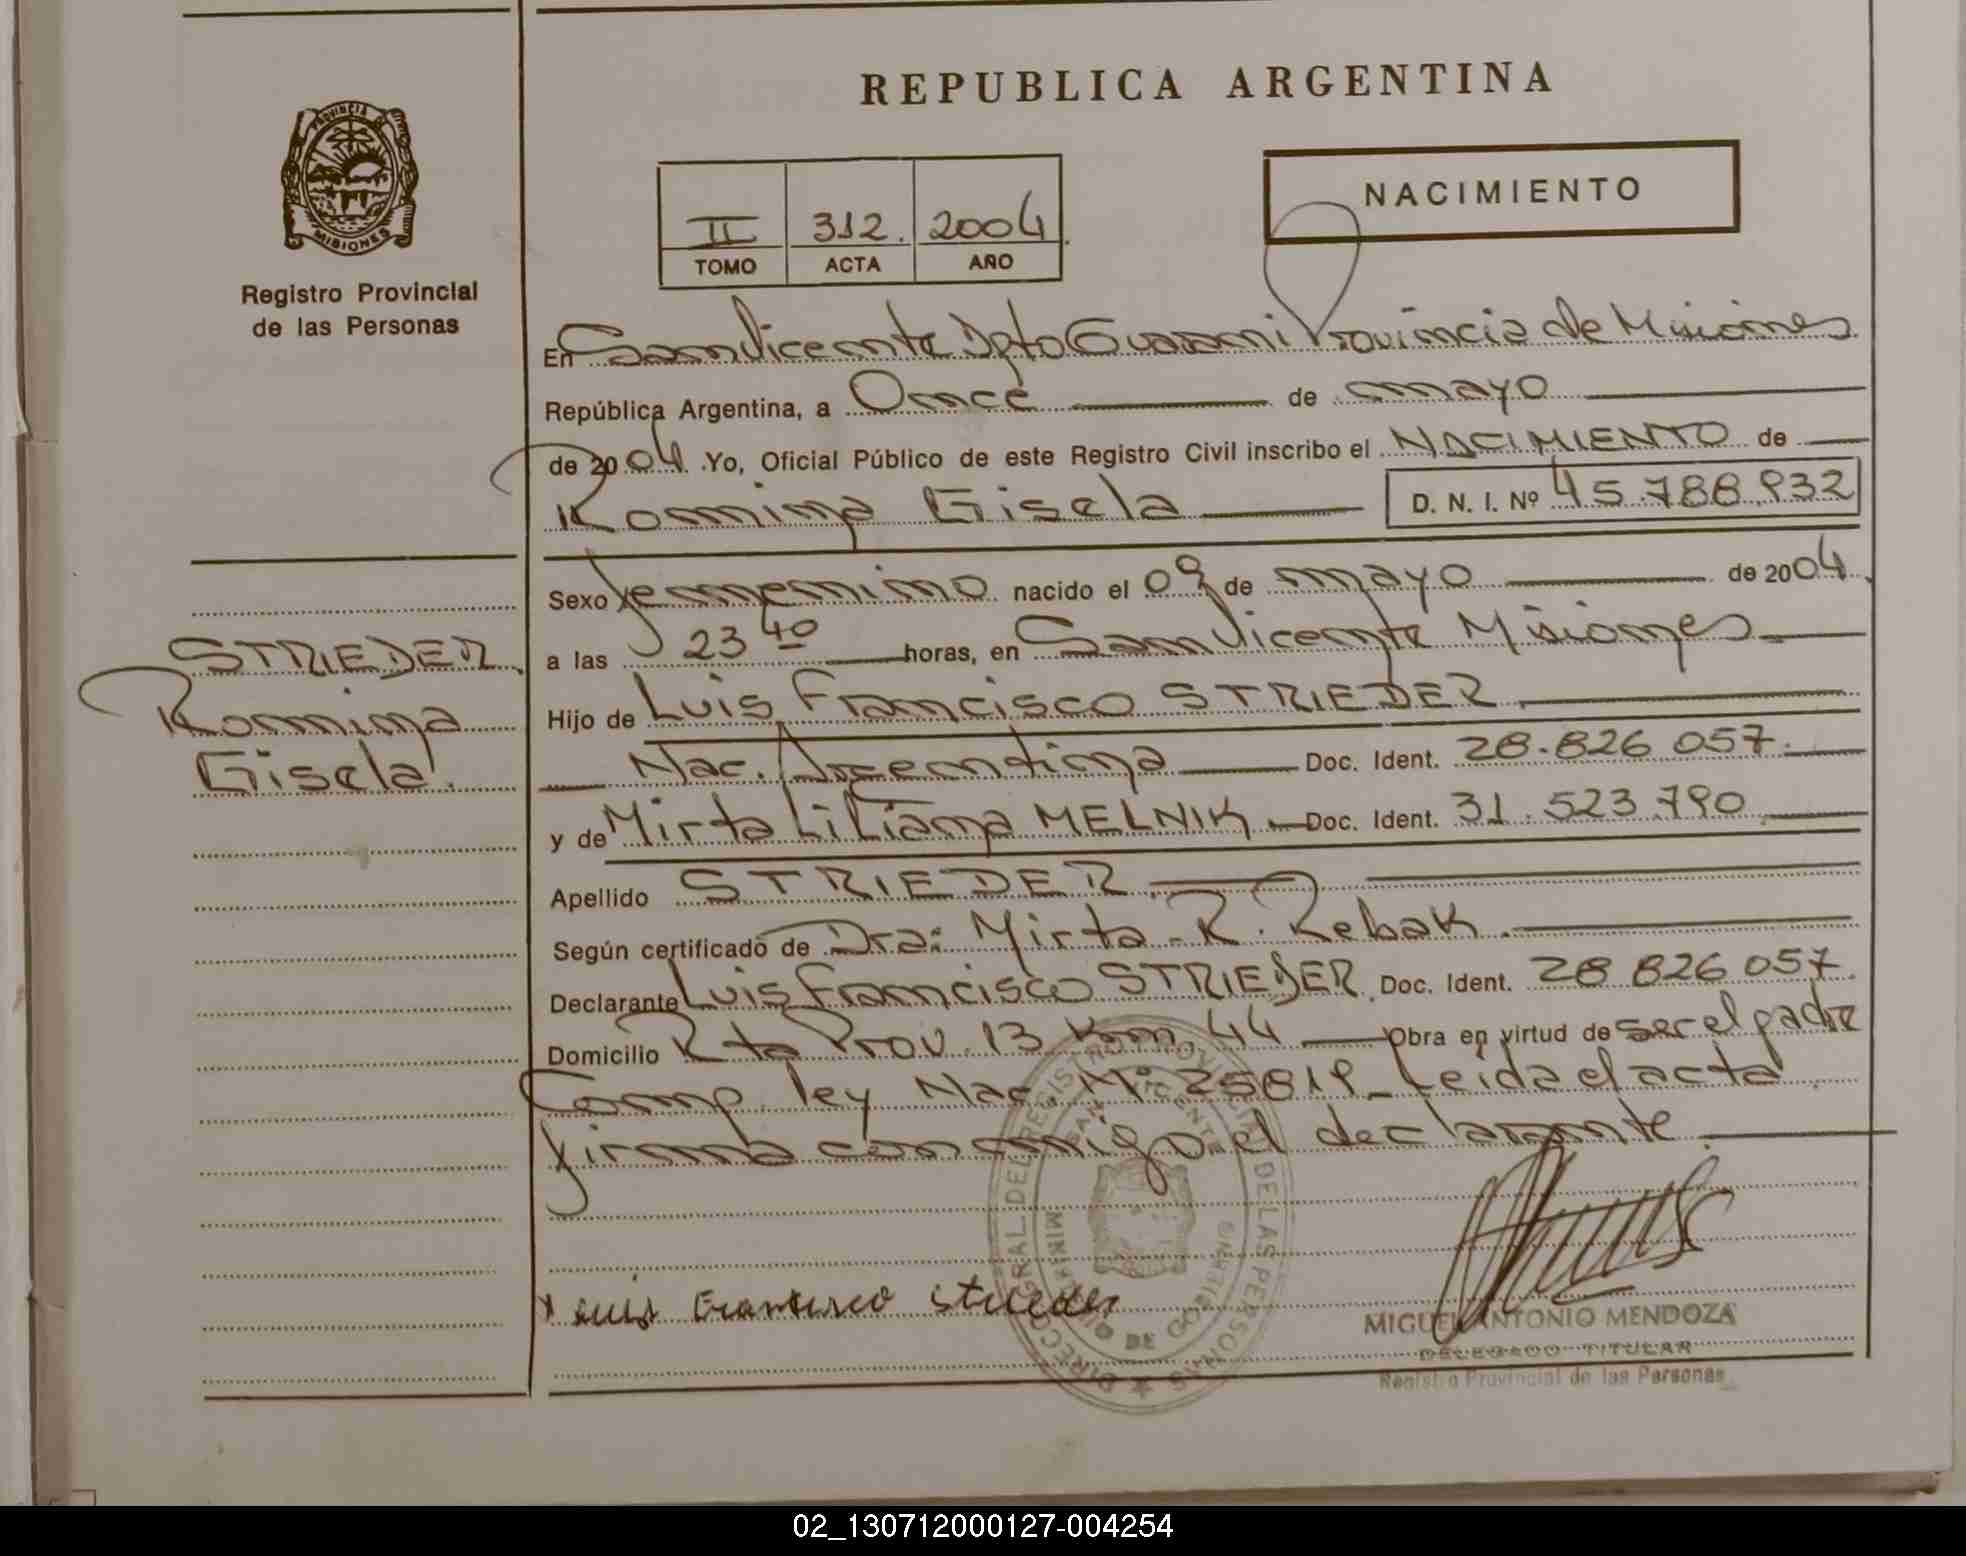 REPUBLICA ARGENTINA
PROVINCIA DE
MISIONES
Registro Provincial
de las Personas
NACIMIENTO
II 312. 2004.
TOMO ACTA AÑO
En San Vicente Dpto Guarani Provincia de Misiones
República Argentina, a Once de mayo
de 2004. Yo, Oficial Público de este Registro Civil inscribo el NACIMIENTO de
Romina Gisela D. N. I. Nº 45.788.932
Sexo femenino nacido el 09 de mayo de 2004.
a las 23 40 horas, en San Vicente Misiones
Hijo de Luis Francisco STRIEDER.
Nac. Argentina Doc. Ident. 28.826.057.
y de Mirta Liliana MELNIK. Doc. Ident. 31.523.790
Apellido STRIEDER.
Según certificado de Dra: Mirta - R. Rebak.
Declarante Luis Francisco STRIEDER. Doc. Ident. 28 826 057.
Domicilio Rta Prov. 13 Km. 44 Obra en virtud de ser el padre
Comp. ley Nac. Nº 25819_ Leída el acta
firma conmigo el declarante.
STRIEDER.
Romina
Gisela.
x Luis Francisco Strieder
DIRECCION GENERAL DEL REGISTRO PROVINCIAL DE LAS PERSONAS
SAN VICENTE
MINISTERIO DE GOBIERNO
MIGUEL ANTONIO MENDOZA
DELEGADO TITULAR
Registro Provincial de las Personas
02_130712000127-004254